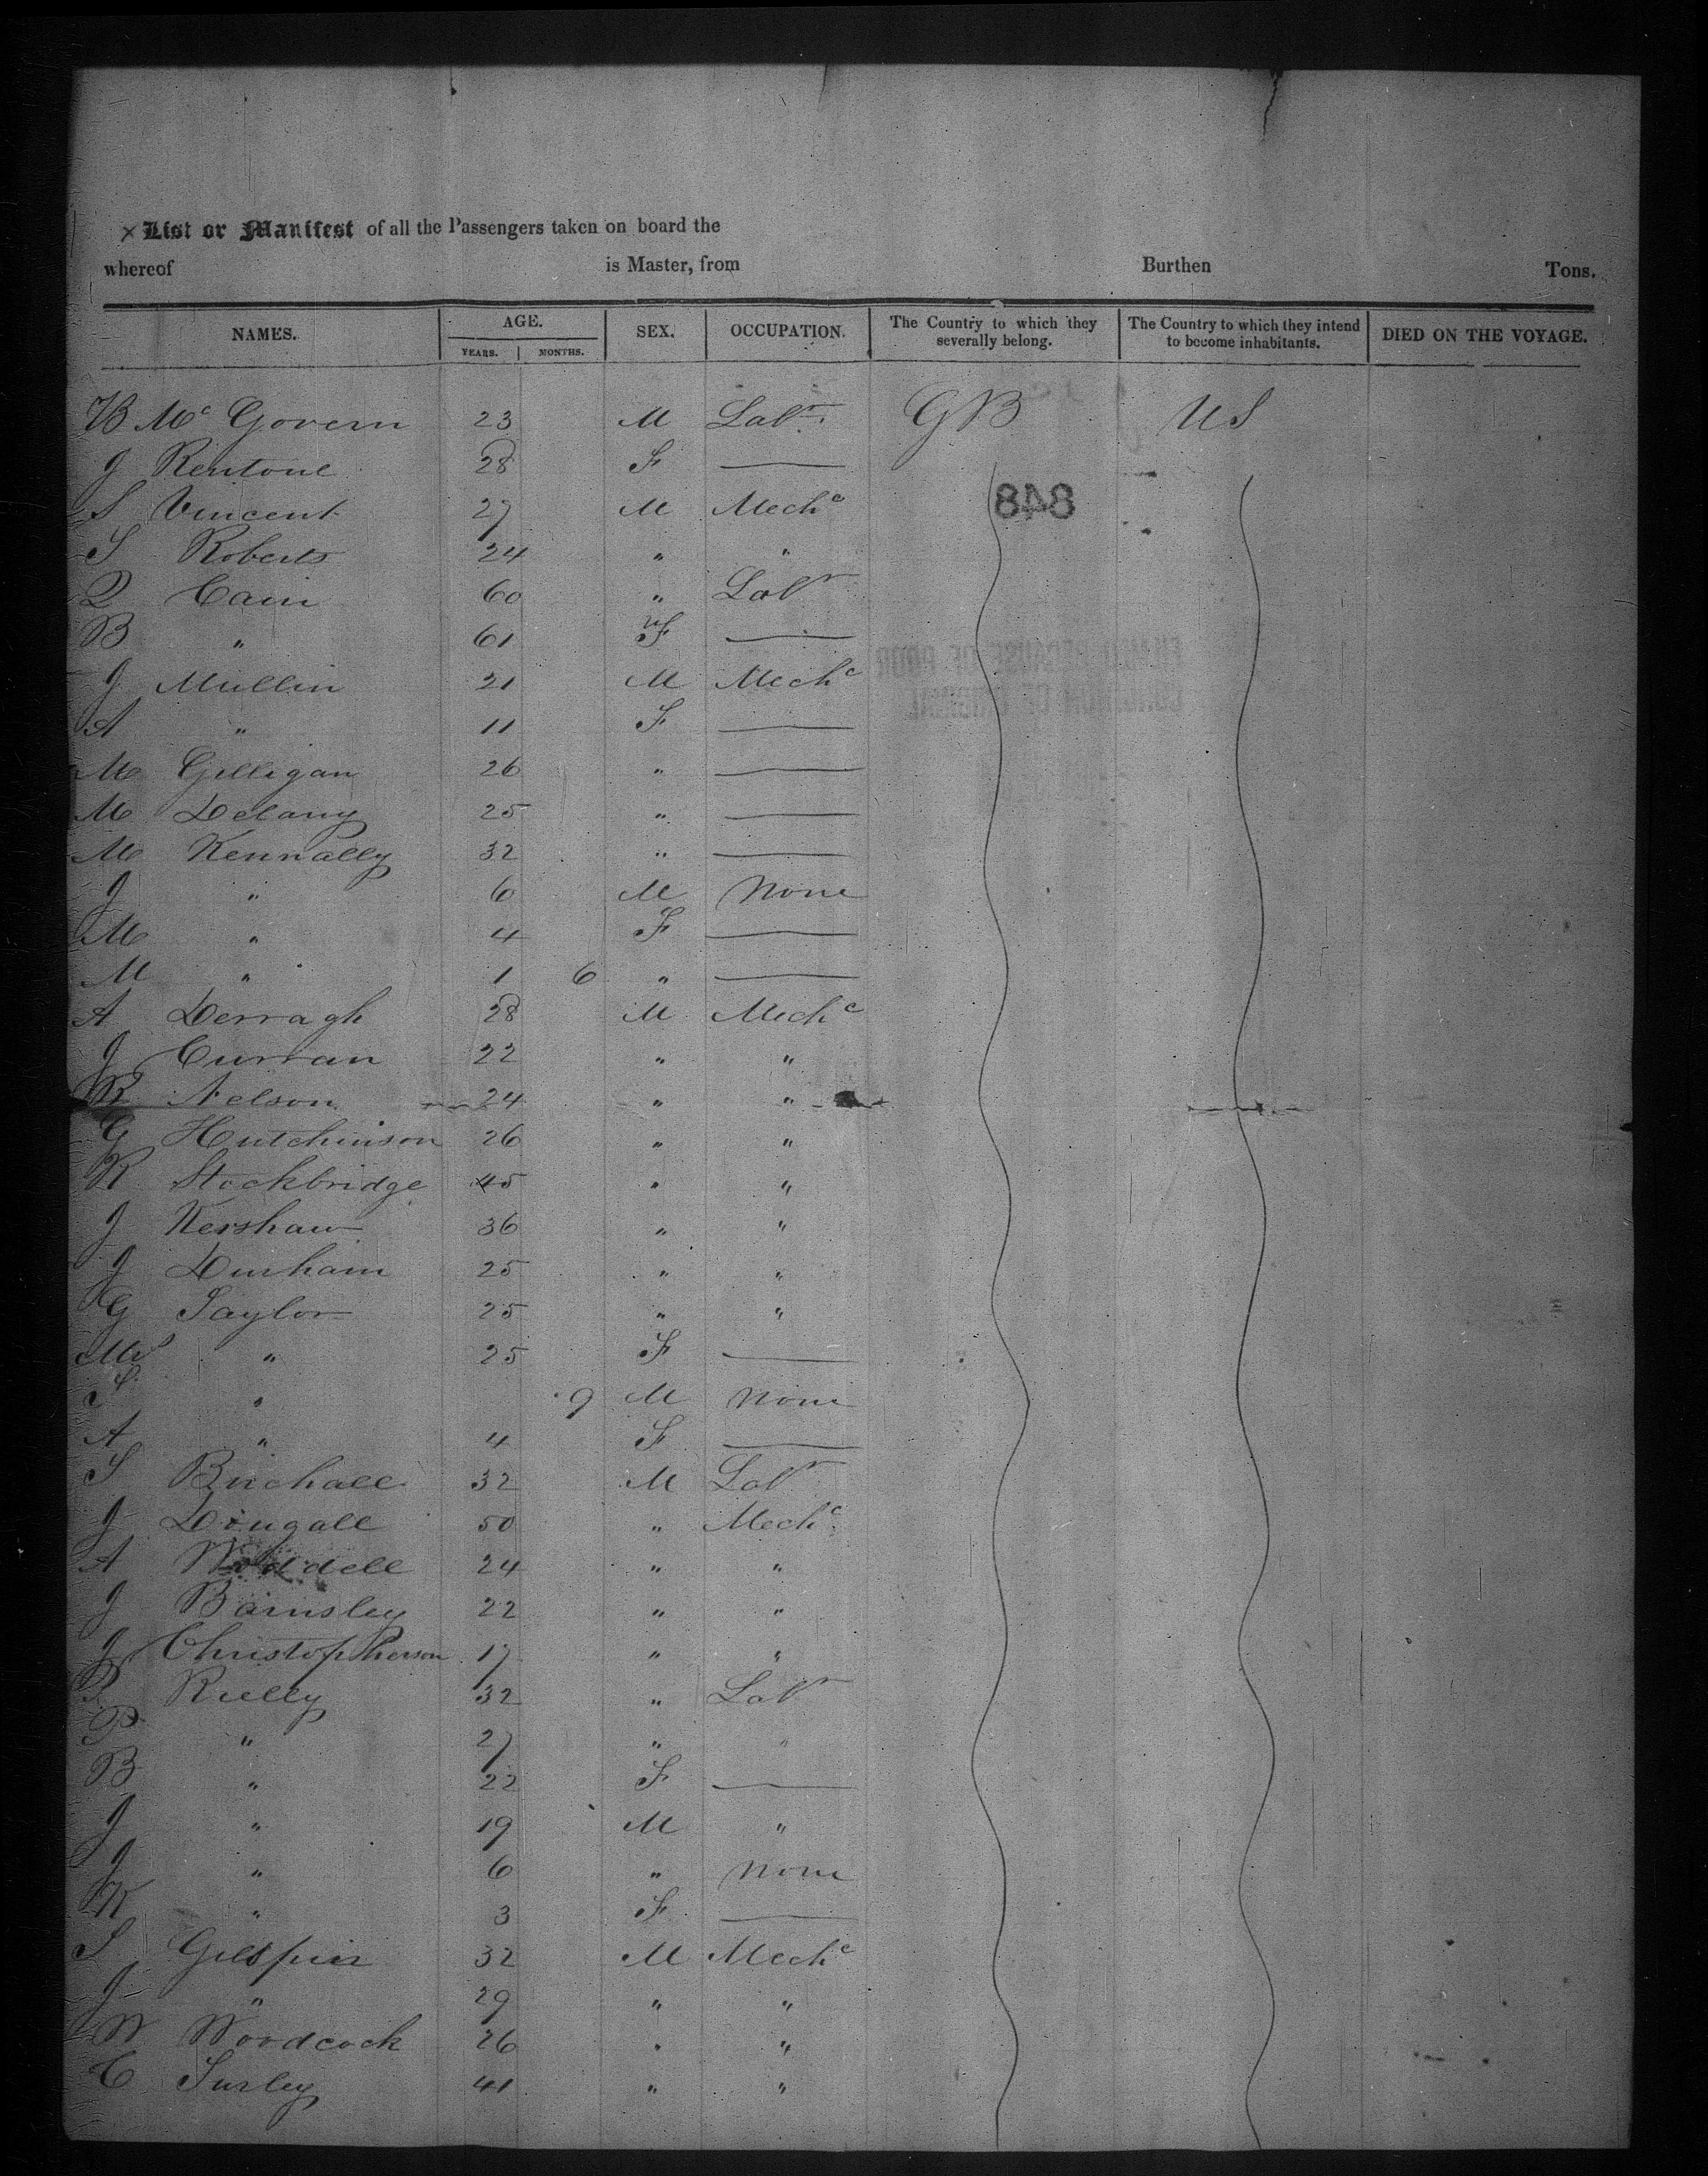 × List or Manifest of all the Passengers taken on board the
whereof is Master, from Burthen Tons.
NAMES. AGE. SEX. OCCUPATION. The Country to which they severally belong. The Country to which they intend to become inhabitants. DIED ON THE VOYAGE.
YEARS. MONTHS.
B Mc Govern 23 M Labr. GB US
J Rentone 28 F —
S Vincent 27 M Mechc
848
S Roberts 24 " "
Cain 60 " Labr
B " 61 F —
J Mullin 21 M Mechc
A " 11 F —
M Gilligan 26 " —
M Delany 25 " —
M Kennally 32 " —
J " 6 M None
M " 4 F —
M " 1 6 " —
A Derragh 28 M Mechc
J Curran 22 " "
R Nelson 24 " "
G Hutchinson 26 " "
R Stockbridge 45 " "
J Kershaw 36 " "
J Durham 25 " "
G Taylor 25 " "
Mrs " 25 F —
S " 9 M None
A " 4 F —
S Birchall 32 M Labr
J Dougall 50 " Mechc
A Woddell 24 " "
J Barnsley 22 " "
J Christopherson 17 " "
Rielly 32 " Labr
P " 27 " "
B " 22 F —
J " 19 M "
J " 6 " None
K " 3 F —
S Gilspin 32 M Mechc
J " 29 " "
W Woodcock 26 " "
C Turley 41 " "